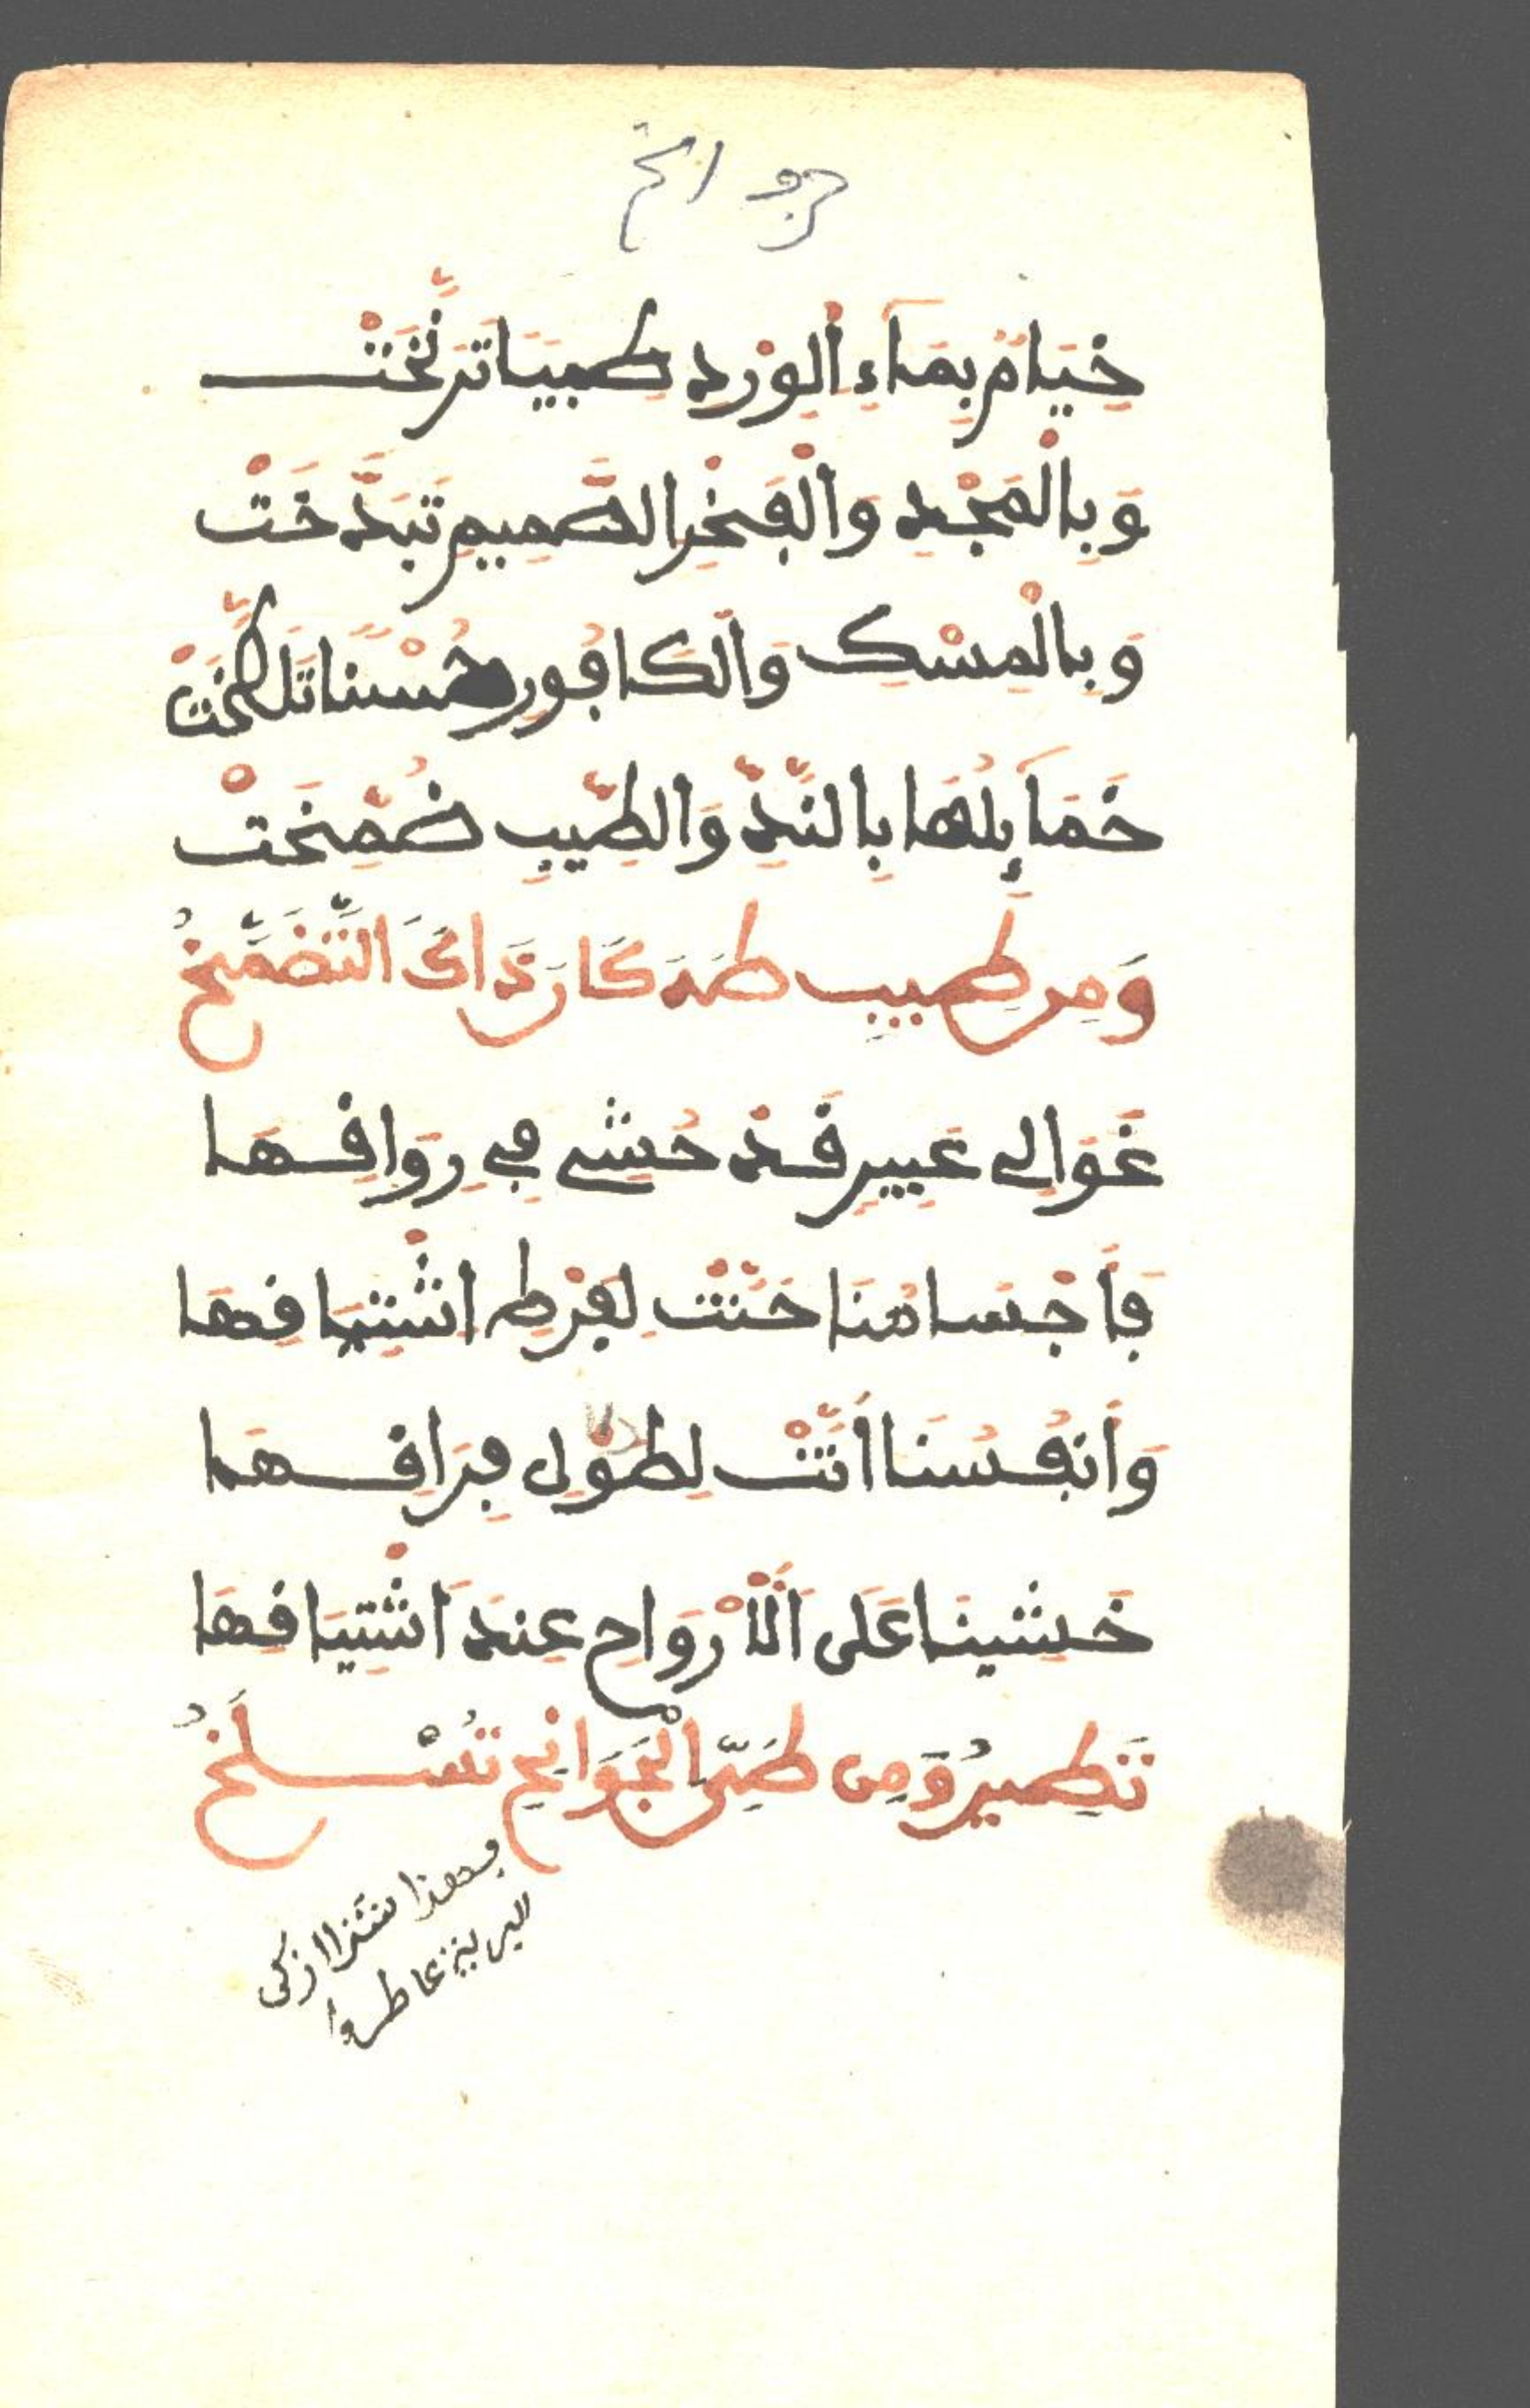 جوانح
خِيَامٌ بِمَآءِ اَلْوَرْدِ طِيبيَاتَرنَّخَتْ
وَبِالْمَجْدِ وَالْڢَخْرِ الصَّمِيمِ تَبَدَّخَتْ
وَبِالْمِسْكِ وَالْكَاڢُورِ حُسْناً تَلَطَّخَتْ
خَمَآئِلُهَا بِالنَّدِّ وَالطِّيبِ ضُمِّخَتْ
وَمِن طِيبِ طَهَ كَانَ ذَاكَ التَّضَمُّخُ
غَوَالِي عَبِيرٍ ڧَدْ حُشِي ڢِي رِوَاڧِهَا
ڢَأَجْسَامُنَا حَنَّتْ لِڢَرْطِ اشْتِيَاڧِهَا
وَأَنڢُسُنَا أَنَّتْ لِطُولِ ڢِرَاڧِهَا
خَشِينَا عَلَى اَلْأَرْوَاحِ عِندَ اشْتِيَاڧِهَا
تَطِيرُ وَمِن طَيِّ الْجَوَانِحِ تُسْلَخُ
بهذا شذا ازكى
البرية عاطر